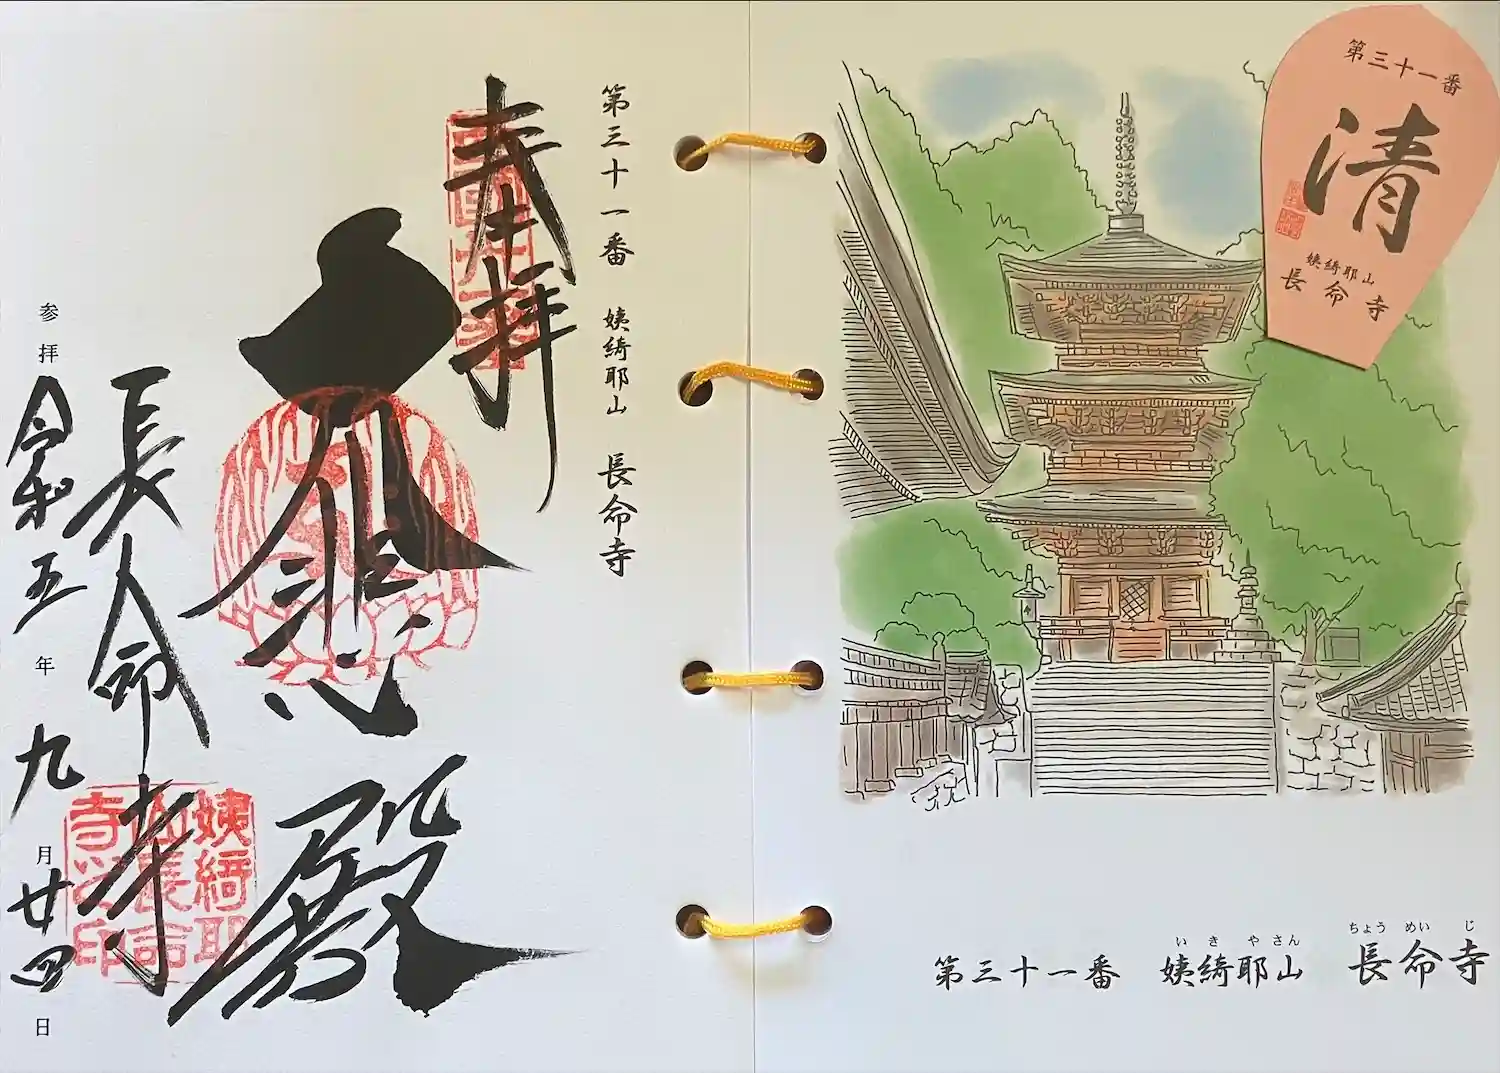 第三十一番 姨綺耶山 長命寺
奉拝
大悲殿
長命寺
参拝 令和五年 九月廿四日
姨綺耶
山長命
寺之印
第三十一番
清
姨綺耶山
長命寺
いきやさん ちょうめいじ
第三十一番 姨綺耶山 長命寺